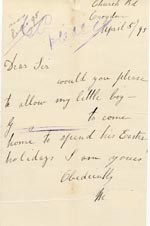 Church Rd
Croydon
April 5/93
Dear Sir
would you please
to allow my little boy -
to come
home to spend his Easter
holidays I am yours
Obediently